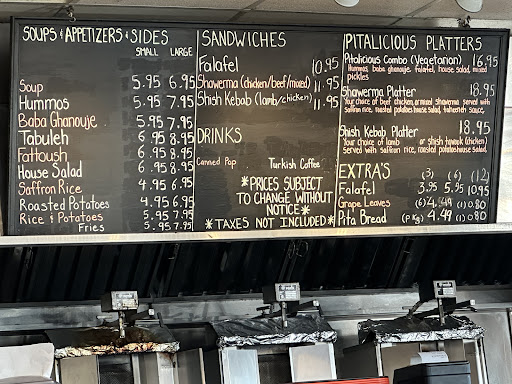 SOUPS & APPETIZERS & SIDES
SMALL LARGE
Soup 5.95 6.95
Hummos 5.95 7.95
Baba Ghanouje 5.95 7.95
Tabuleh 6.95 8.95
Fattoush 6.95 8.95
House Salad 6.95 8.95
Saffron Rice 4.95 6.95
Roasted Potatoes 4.95 6.95
Rice & Potatoes 5.95 7.95
Fries 5.95 7.95
SANDWICHES
Falafel 10.95
Shawerma (chicken/beef/mixed) 11.95
Shish Kebab (lamb/chicken) 11.95
DRINKS
Canned Pop Turkish Coffee
*PRICES SUBJECT
TO CHANGE WITHOUT
NOTICE*
*TAXES NOT INCLUDED*
PITALICIOUS PLATTERS
Pitalicious Combo (Vegetarian) 16.95
Hummos, baba ghanouje, falafel, house salad, mixed
pickles
Shawerma Platter 18.95
Your choice of beef chicken, or mixed shawerma served with
saffron rice, roasted potatoes house salad, tahini sauce
Shish Kebab Platter 18.95
Your choice of lamb or shish tawouk (chicken)
served with saffron rice, roasted potatoes house salad,
EXTRA'S (3) (6) (12)
Falafel 3.95 5.95 10.95
Grape Leaves (6) 4.49 (1) 0.80
Pita Bread (P Kg) 4.49 (1) 0.80